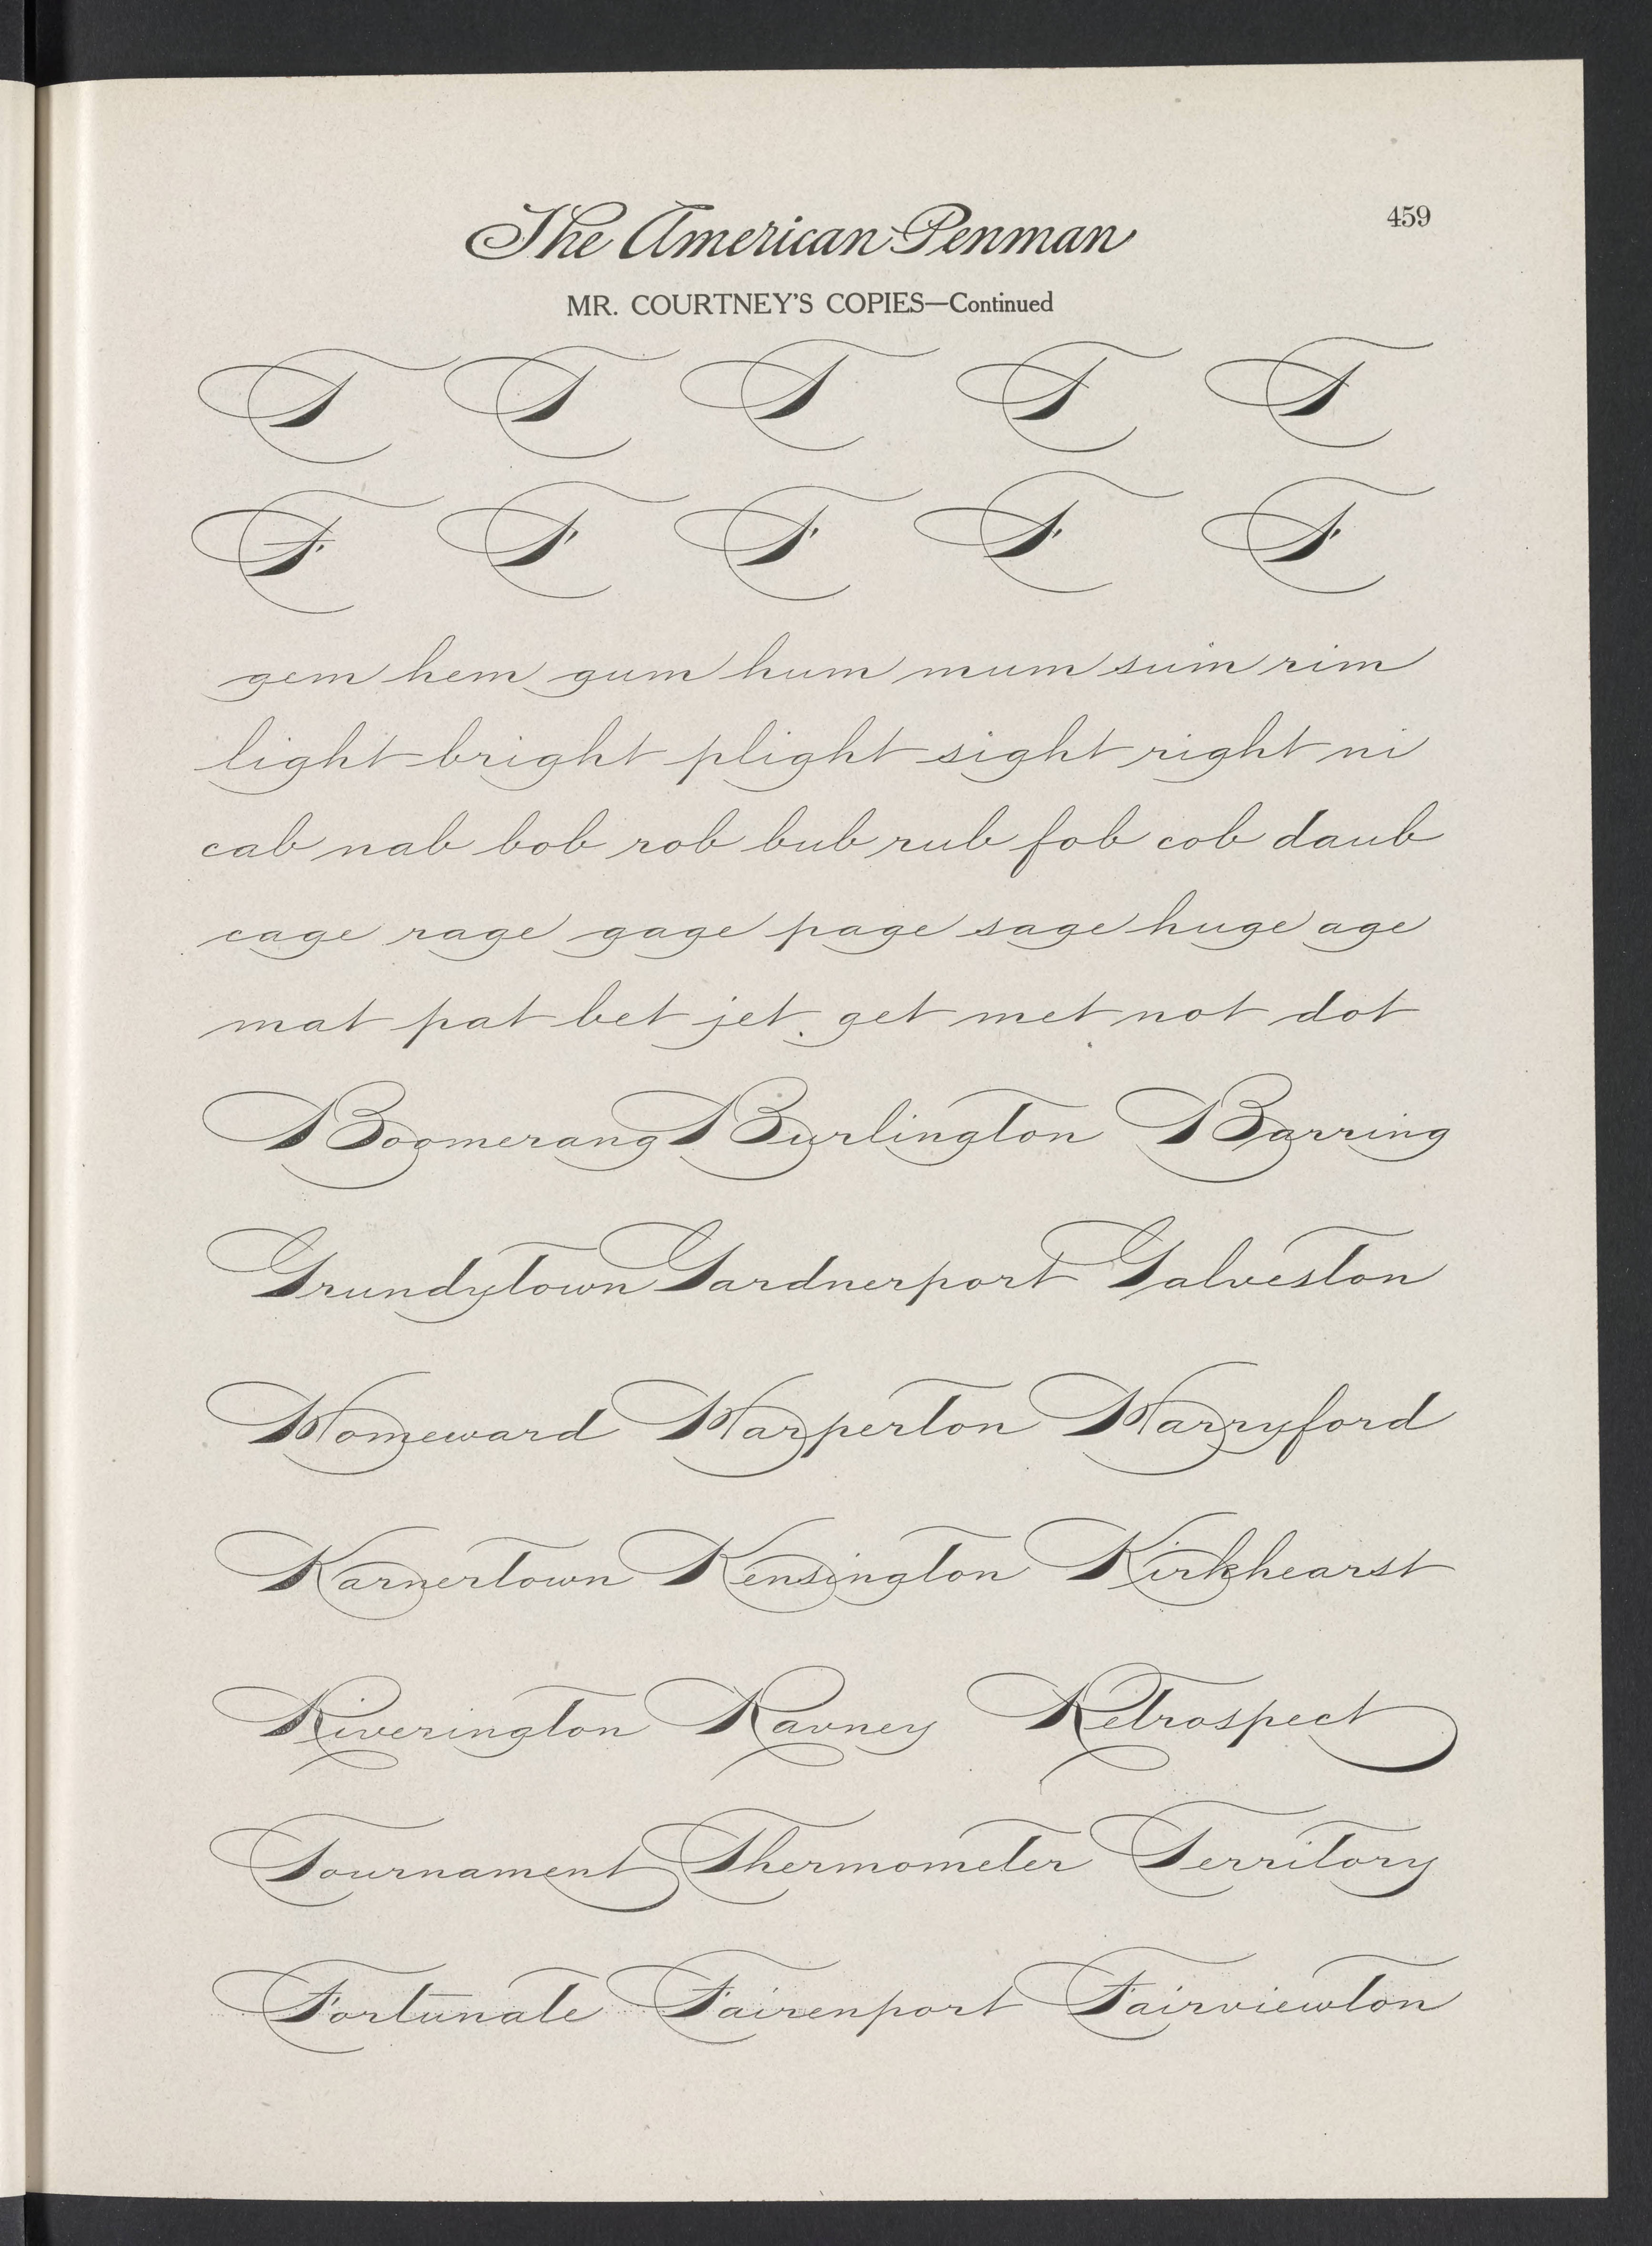 The American Penman
459
MR. COURTNEY'S COPIES—Continued
T T T T T
F F F F F
gem hem gum hum mum sum rim
light bright plight sight right ni
cab nab bob rob bub rub fob cob daub
cage rage gage page sage huge age
mat pat bet jet get met not dot
Boomerang Burlington Barring
Grundytown Gardnerport Galveston
Homeward Harperton Harryford
Karnertown Kensington Kirkhearst
Riverington Ravney Retrospect
Tournament Thermometer Territory
Fortunate Fairenport Fairviewton